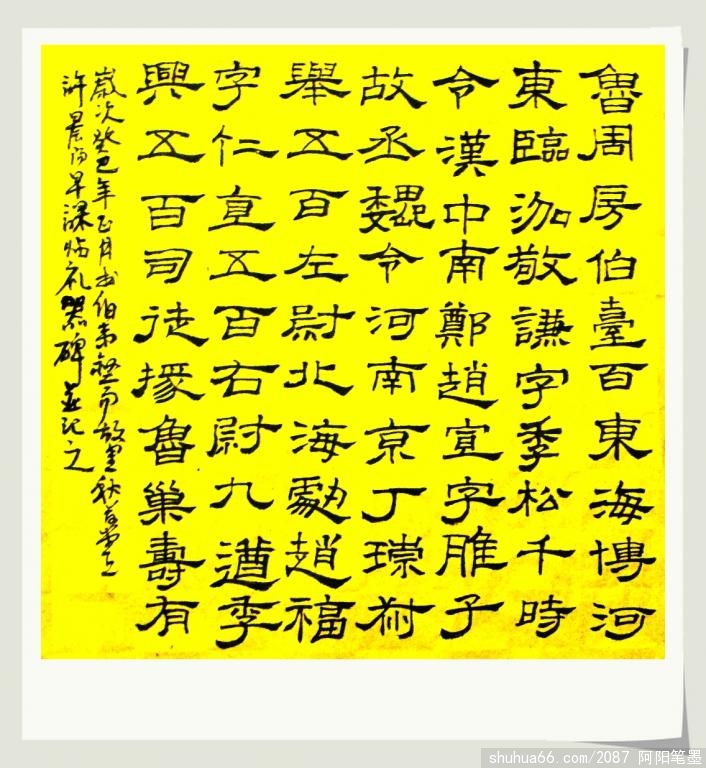 魯周房伯臺百東海傅河
東臨汾敬謙字季松千時
令漢中南鄭趙宣字雁子
故丞魏令河南京丁琮叔
舉五百左尉北海劇趙福
字仁直五百右尉九遒季
興五百司徒掾魯巢壽有
歲次癸巳年正月書伯
許晨陽早課臨礼器碑並記之
shuhua66.com/2087 阿阳笔墨